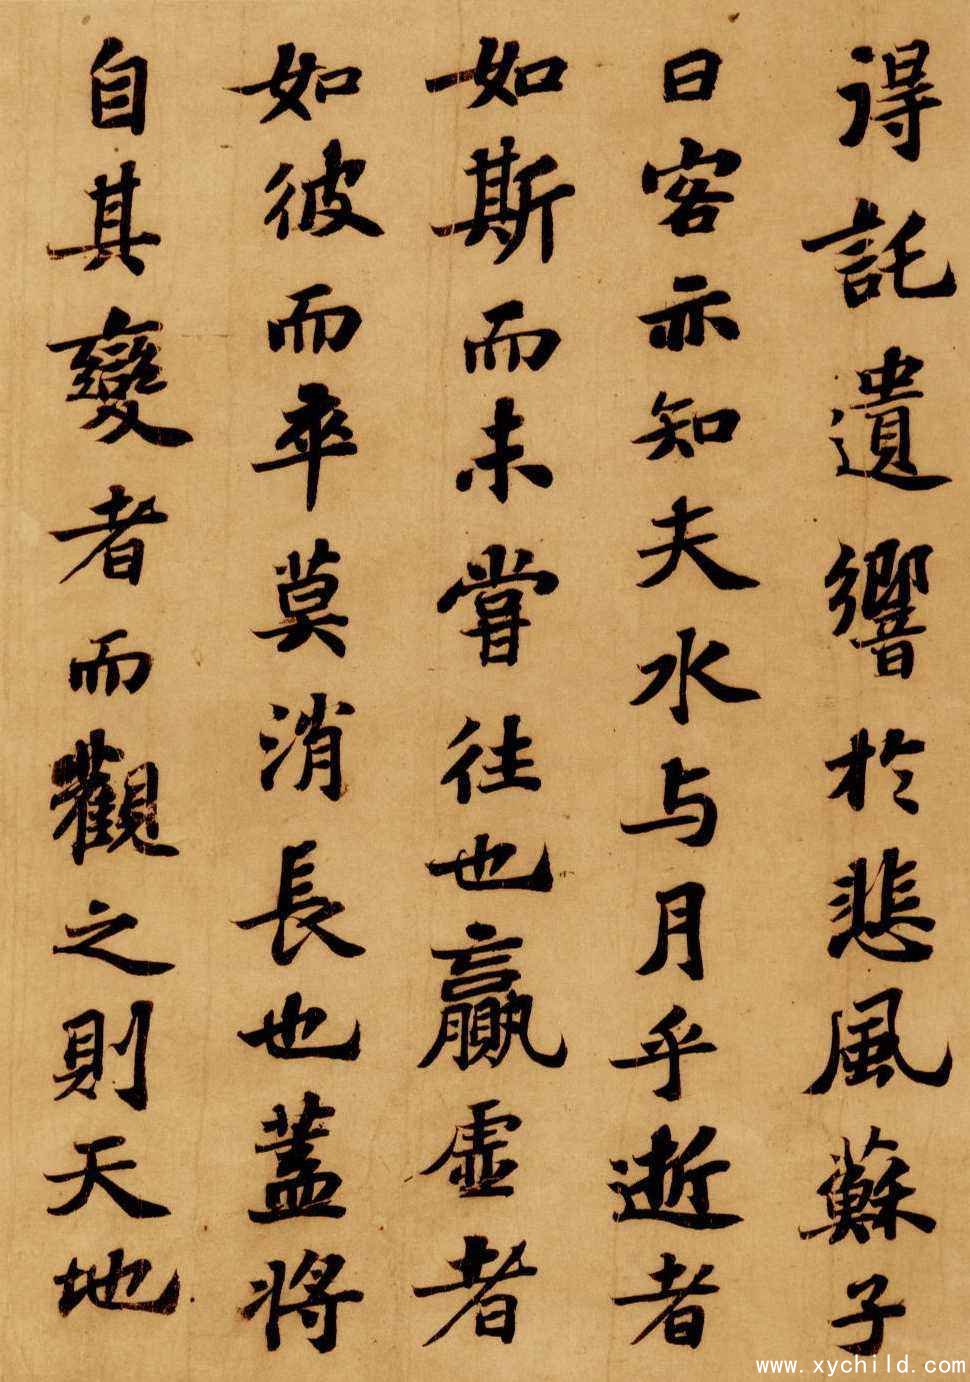 得託遺響於悲風蘇子
曰客亦知夫水与月乎逝者
如斯而未嘗往也贏虛者
如彼而卒莫消長也蓋將
自其變者而觀之則天地
www.xychild.com